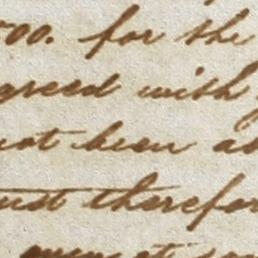 500. for the
agreed with
not been
must therefor